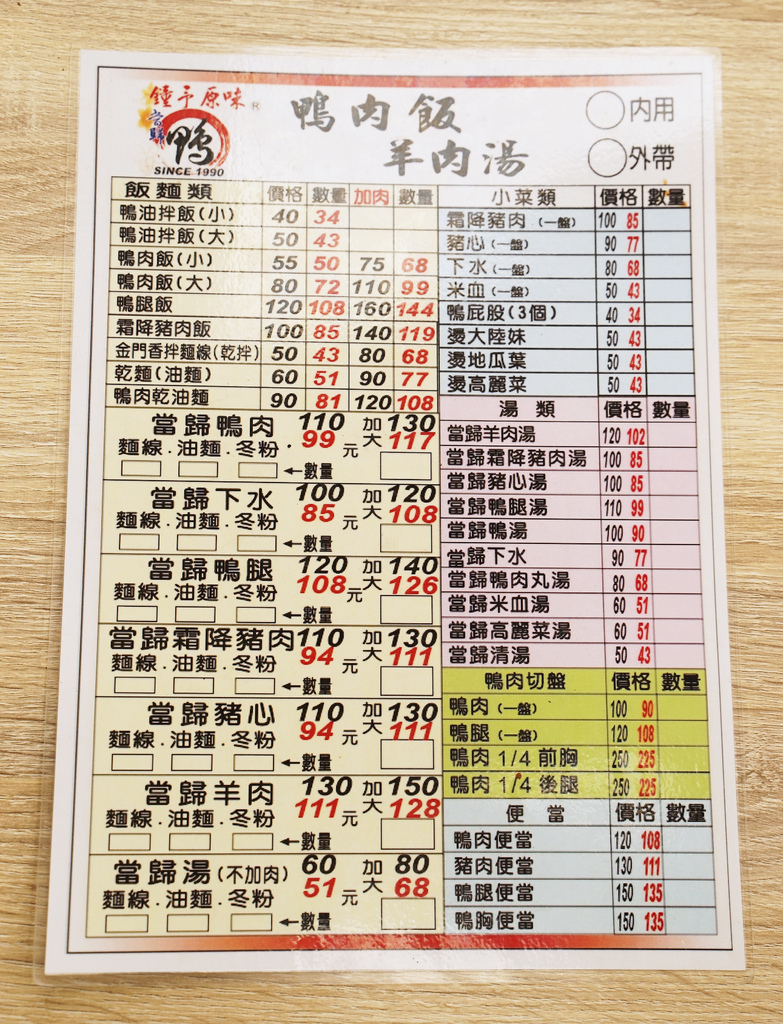 鐘予原味®
當歸
鴨
SINCE 1990
鴨肉飯
羊肉湯
內用
外帶
飯麵類 價格 數量 加肉 數量
鴨油拌飯(小) 40 34
鴨油拌飯(大) 50 43
鴨肉飯(小) 55 50 75 68
鴨肉飯(大) 80 72 110 99
鴨腿飯 120 108 160 144
霜降豬肉飯 100 85 140 119
金門香拌麵線(乾拌) 50 43 80 68
乾麵(油麵) 60 51 90 77
鴨肉乾油麵 90 81 120 108
當歸鴨肉 110 加 130
麵線.油麵.冬粉. 99 元 大 117
←數量
當歸下水 100 加 120
麵線.油麵.冬粉 85 元 大 108
←數量
當歸鴨腿 120 加 140
麵線.油麵.冬粉 108 元 大 126
←數量
當歸霜降豬肉 110 加 130
麵線.油麵.冬粉 94 元 大 111
←數量
當歸豬心 110 加 130
麵線.油麵.冬粉 94 元 大 111
←數量
當歸羊肉 130 加 150
麵線.油麵.冬粉 111 元 大 128
←數量
當歸湯(不加肉) 60 加 80
麵線.油麵.冬粉 51 元 大 68
←數量
小菜類 價格 數量
霜降豬肉(一盤) 100 85
豬心(一盤) 90 77
下水(一盤) 80 68
米血(一盤) 50 43
鴨屁股(3個) 40 34
燙大陸妹 50 43
燙地瓜葉 50 43
燙高麗菜 50 43
湯類 價格 數量
當歸羊肉湯 120 102
當歸霜降豬肉湯 100 85
當歸豬心湯 100 85
當歸鴨腿湯 110 99
當歸鴨湯 100 90
當歸下水 90 77
當歸鴨肉丸湯 80 68
當歸米血湯 60 51
當歸高麗菜湯 60 51
當歸清湯 50 43
鴨肉切盤 價格 數量
鴨肉(一盤) 100 90
鴨腿(一盤) 120 108
鴨肉 1/4 前胸 250 225
鴨肉 1/4 後腿 250 225
便當 價格 數量
鴨肉便當 120 108
豬肉便當 130 111
鴨腿便當 150 135
鴨胸便當 150 135